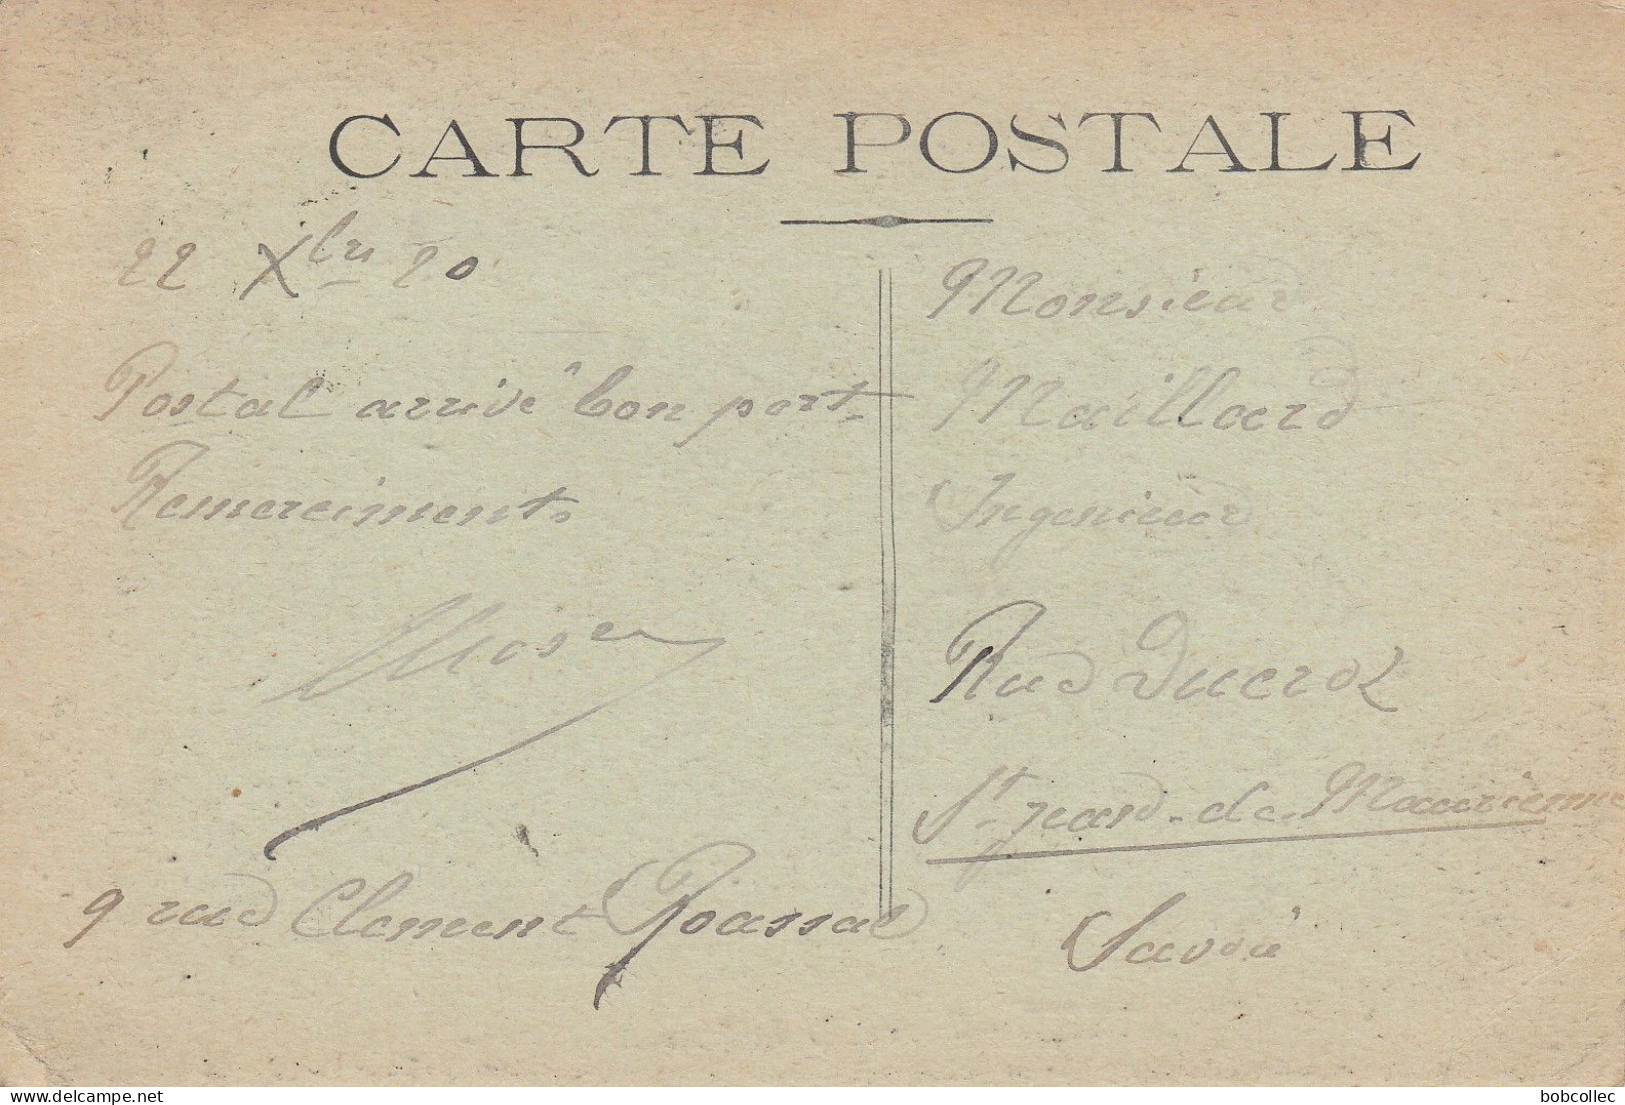 CARTE POSTALE
22 Xbre 20
Postal arrivé à bon port
Remerciments
9 rue Clement
Monsieur
Maillard
Ingenieur
Rue Ducroz
St Jean-de-Maurienne
Savoie
bobcollec
www.delcampe.net